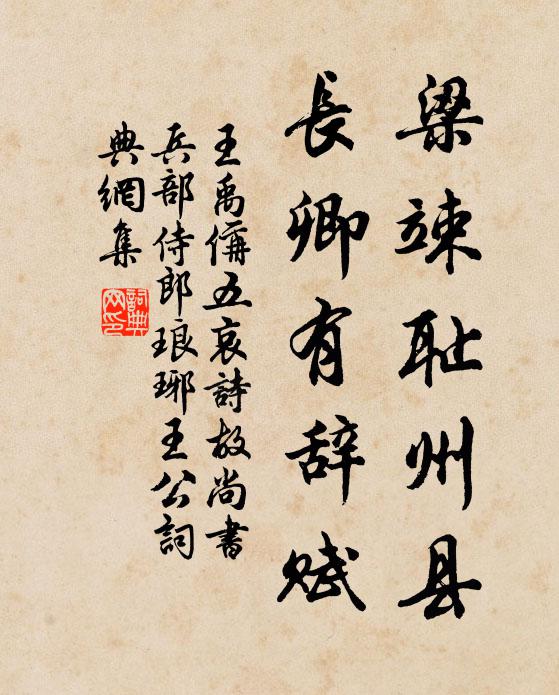 梁竦耻州县
長卿有辞赋
王禹偁五哀詩故尚書
兵部侍郎琅琊王公詞
典網集
詞典网印